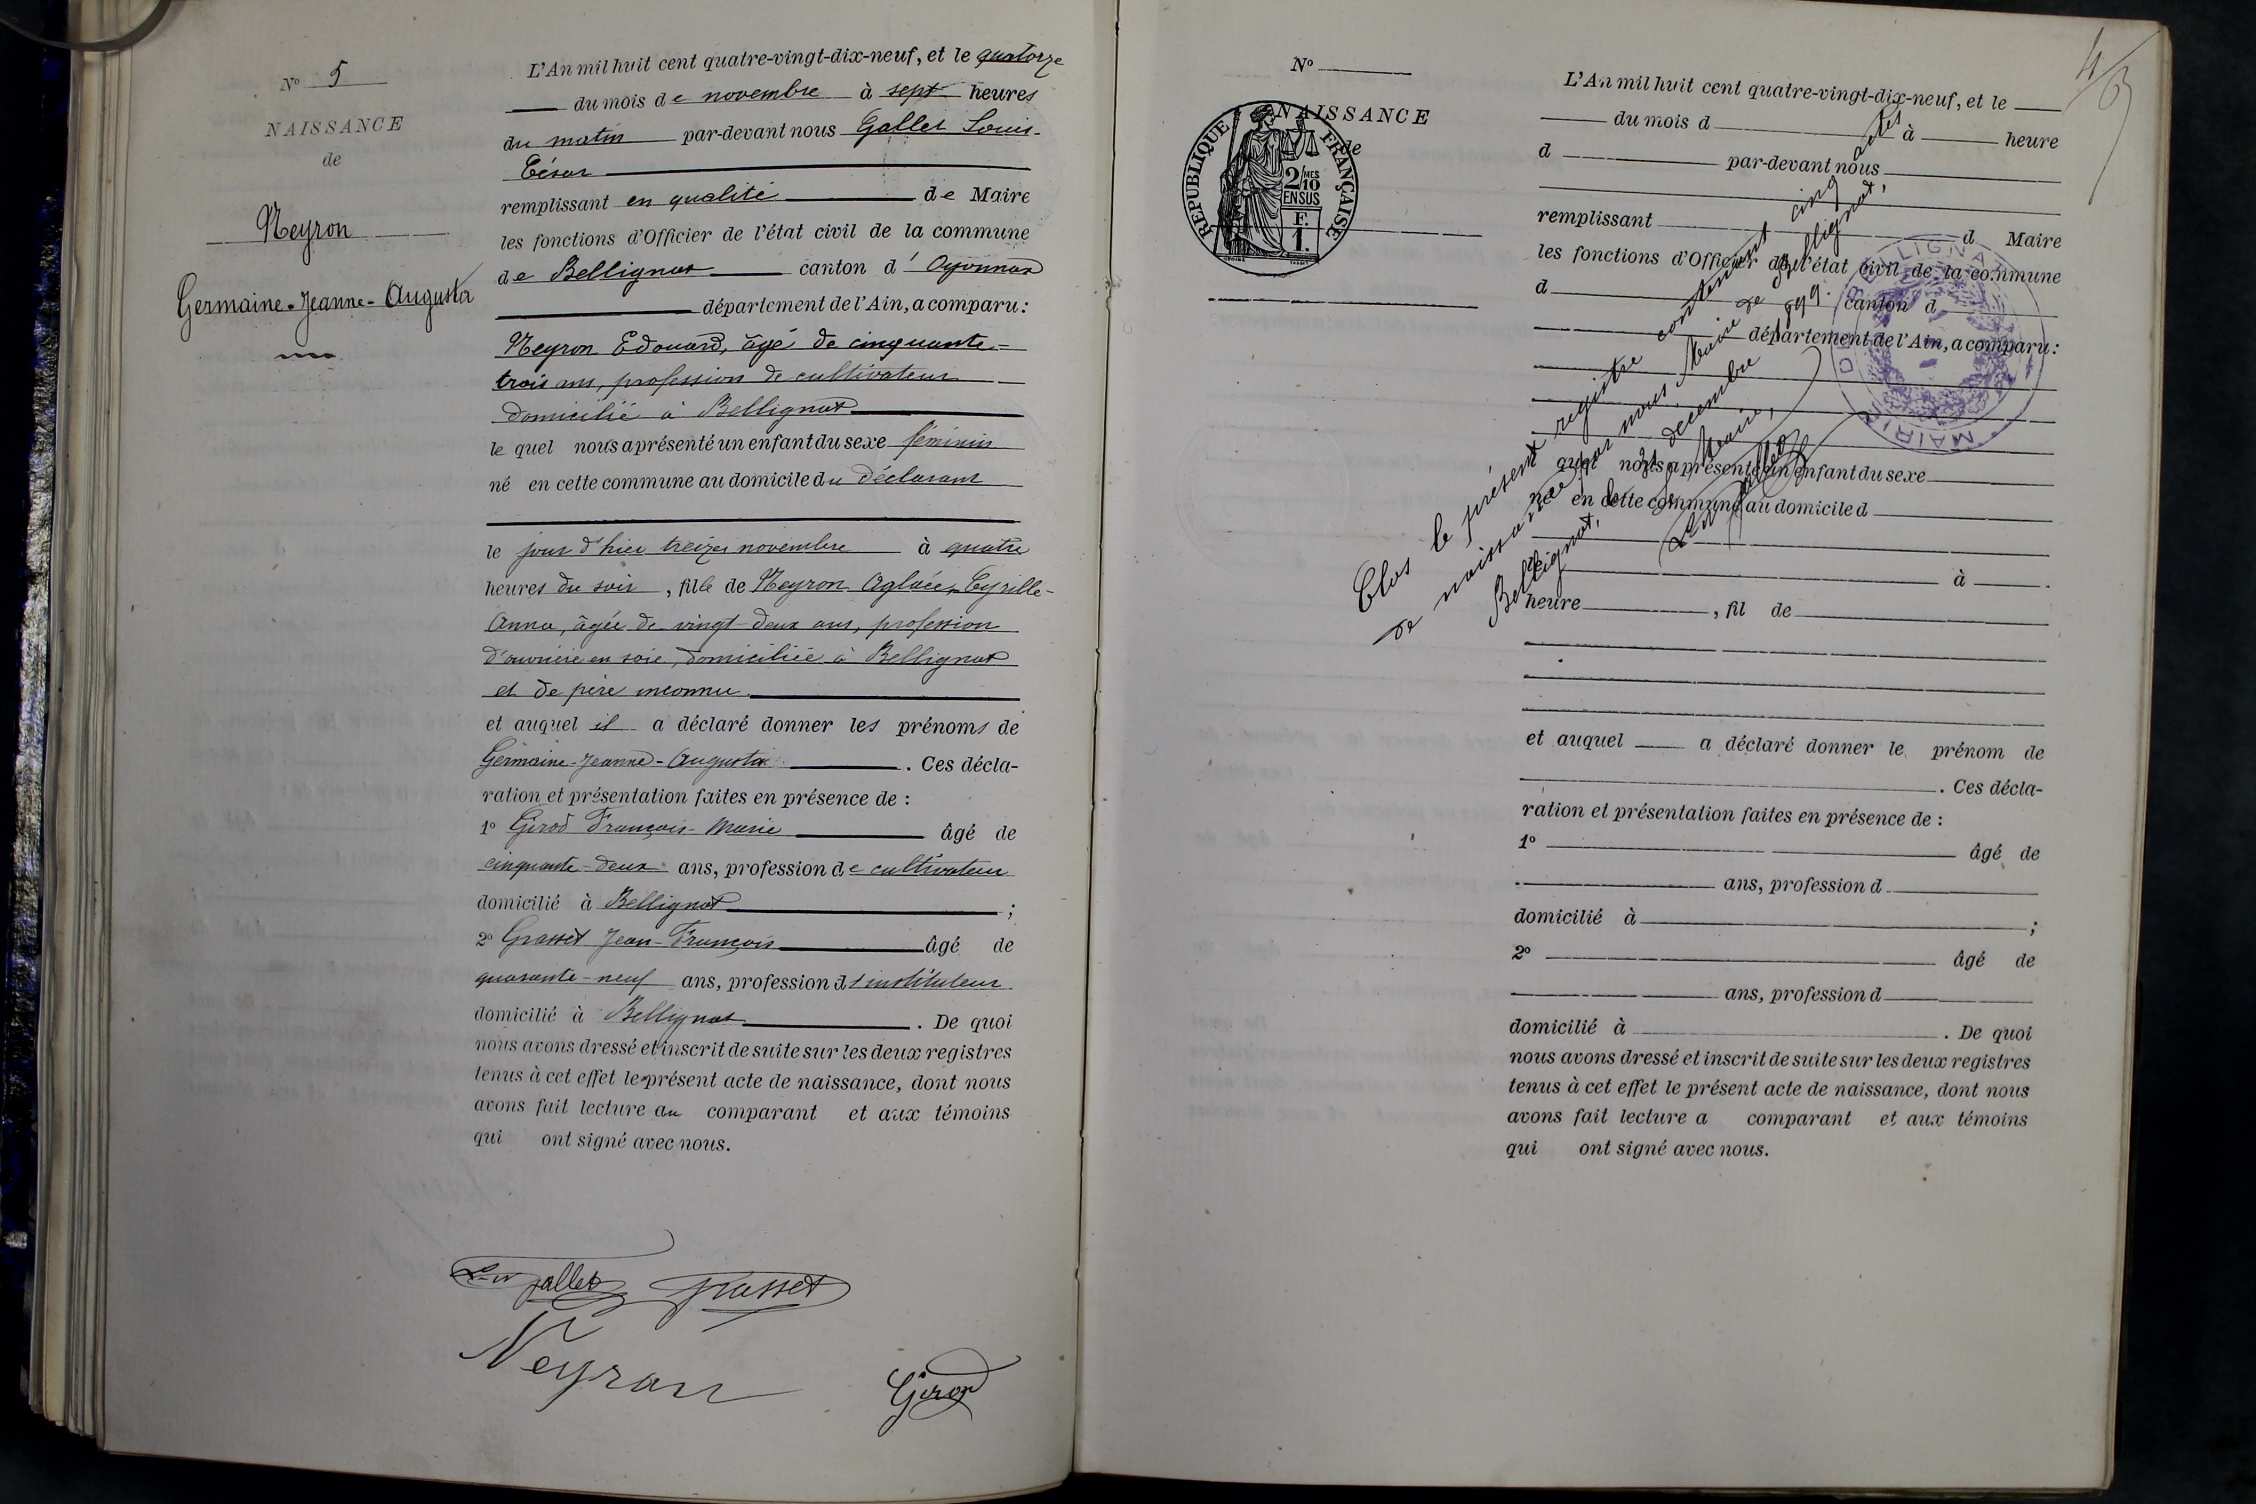 N° 5
NAISSANCE
de
Neyron
Germaine-Jeanne-Augusta
L'An mil huit cent quatre-vingt-dix-neuf, et le quatorze
du mois de novembre à sept heures
du matin par-devant nous Gallet Louis-
César
remplissant en qualité de Maire
les fonctions d'Officier de l'état civil de la commune
de Bellignat canton d' Oyonnax
département de l'Ain, a comparu :
Neyron Edouard, âgé de cinquante-
trois ans, profession de cultivateur
domicilié à Bellignat
le quel nous a présenté un enfant du sexe féminin
né en cette commune au domicile du déclarant
le jour d'hier treize novembre à quatre
heures du soir, fille de Neyron Aglaée-Cyrille-
Anna, âgée de vingt-deux ans, profession
d'ouvrière en soie, domiciliée à Bellignat
et de père inconnu
et auquel il a déclaré donner les prénoms de
Germaine-Jeanne-Augusta. Ces décla-
ration et présentation faites en présence de :
1° Girod François-Marie âgé de
cinquante-deux ans, profession de cultivateur
domicilié à Bellignat ;
2° Grasset Jean-François âgé de
quarante-neuf ans, profession d'instituteur
domicilié à Bellignat. De quoi
nous avons dressé et inscrit de suite sur les deux registres
tenus à cet effet le présent acte de naissance, dont nous
avons fait lecture au comparant et aux témoins
qui ont signé avec nous.
Gallet Grasset
Neyron
Girod
N°
NAISSANCE
de
RÉPUBLIQUE FRANÇAISE
2/10 MES
EN SUS
F.
1.
L'An mil huit cent quatre-vingt-dix-neuf, et le
du mois d à heure
d par-devant nous
remplissant d Maire
les fonctions d'Officier de l'état civil de la commune
d canton d
département de l'Ain, a comparu :
quel nous a présenté un enfant du sexe
né en cette commune au domicile d
le à
heure , fil de
et auquel a déclaré donner le prénom de
. Ces décla-
ration et présentation faites en présence de :
1° âgé de
ans, profession d
domicilié à ;
2° âgé de
ans, profession d
domicilié à . De quoi
nous avons dressé et inscrit de suite sur les deux registres
tenus à cet effet le présent acte de naissance, dont nous
avons fait lecture a comparant et aux témoins
qui ont signé avec nous.
Clos le présent registre contenant cinq actes
de naissance par nous Maire de Bellignat,
Bellignat, le 31 décembre 1899.
Le Maire,
Gallet
MAIRIE DE BELLIGNAT